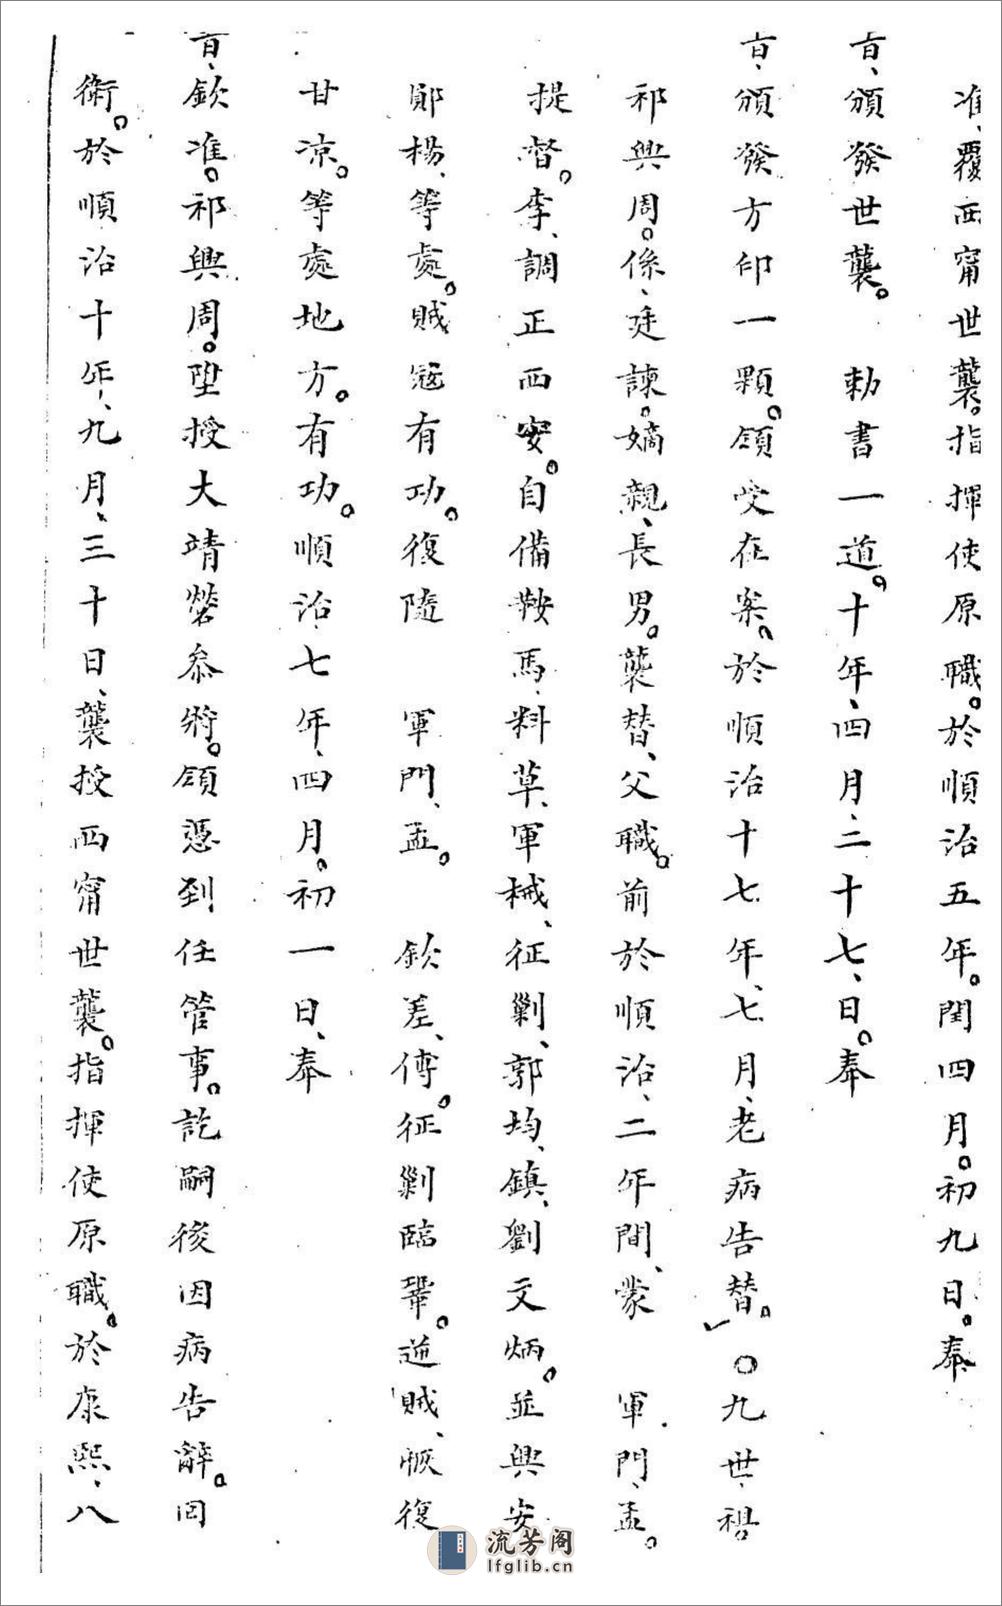 准、覆西甯世襲。指揮使原職。於順治五年。閏四月。初九日。奉
旨、頒發世襲。　勅書一道。十年、四月、二十七、日。奉
旨、頒發方印一顆。領受在案。於順治十七年、七月、老病告替。〇九世、祖
祁興周。係、廷諫。嫡親、長男。襲替、父職。前於順治、二年間、蒙　軍門、孟。
提督。李、調正西安。自備鞍馬、料草、軍械、征剿、郭均、鎮、劉文炳。並興安
鄖楊、等處。賊寇有功。復隨　軍門、孟。　欽差、傅。征剿臨鞏。逆賊、恢復
甘涼。等處地方。有功。順治七年、四月。初一日、奉
旨、欽准。祁興周。陞授大靖營叅將。領憑到任管事。訖嗣後因病告辭。因
衛。於順治十年、九月、三十日、襲授西甯世襲。指揮使原職。於康熙、八
流芳阁
lfglib.cn